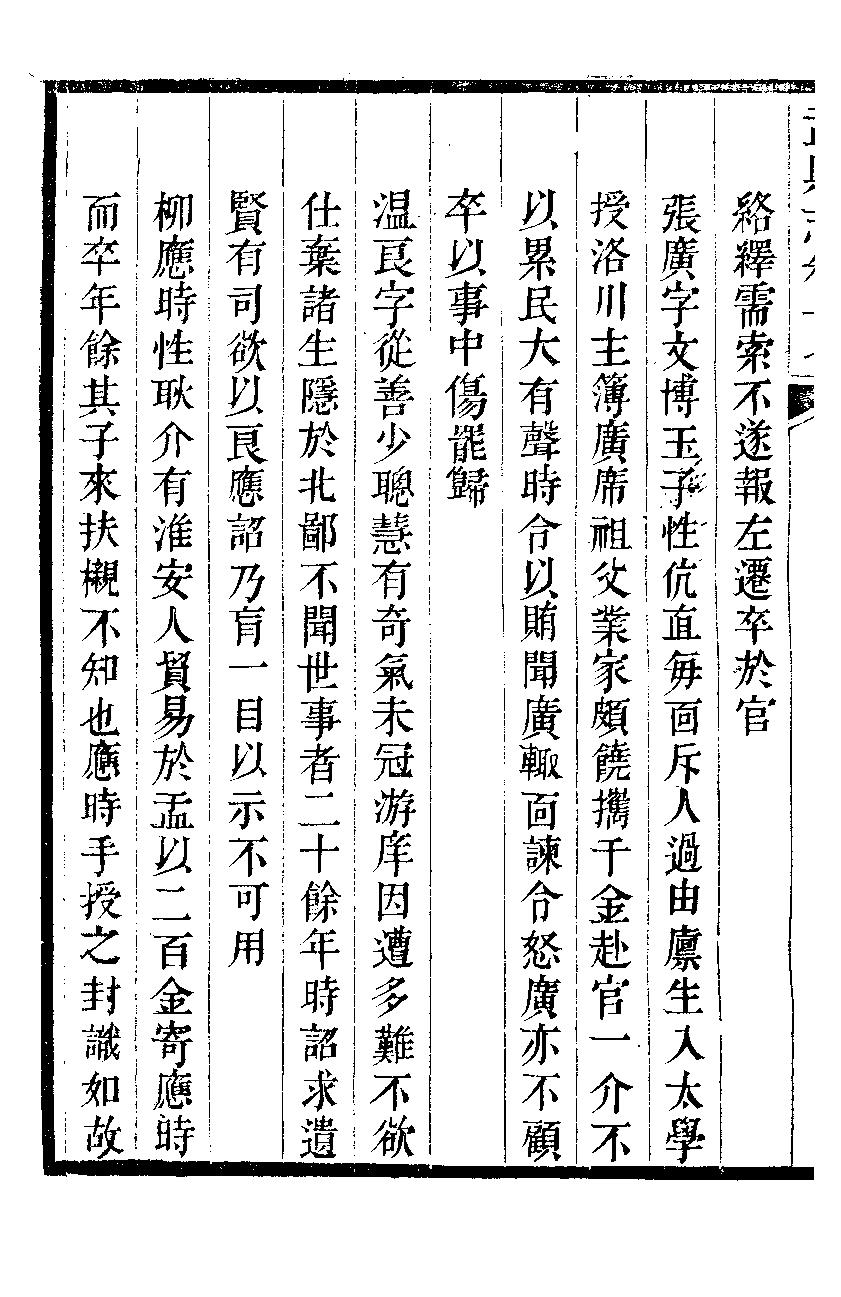 絡繹需索不遂報左遷卒於官
張廣字文博玉子性伉直每面斥人過由廪生入太學
授洛川主簿廣席祖父業家頗饒攜千金赴官一介不
以累民大有聲時令以賄聞廣輙面諫令怒廣亦不顧
卒以事中傷罷歸
温良字從善少聰慧有奇氣未冠游庠因遭多難不欲
仕棄諸生隱於北鄙不聞世事者二十餘年時詔求遺
賢有司欲以良應詔乃盲一目以示不可用
柳應時性耿介有淮安人貿易於孟以二百金寄應時
而卒年餘其子來扶櫬不知也應時手授之封識如故